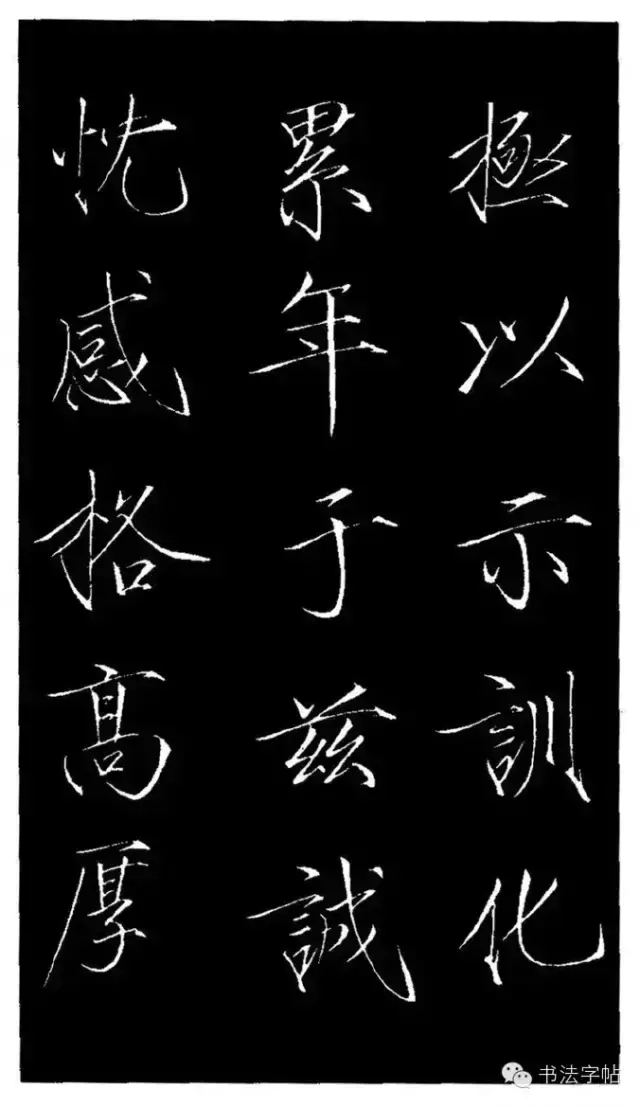 極以示訓化
累年于兹誠
忱感格高厚
书法字帖